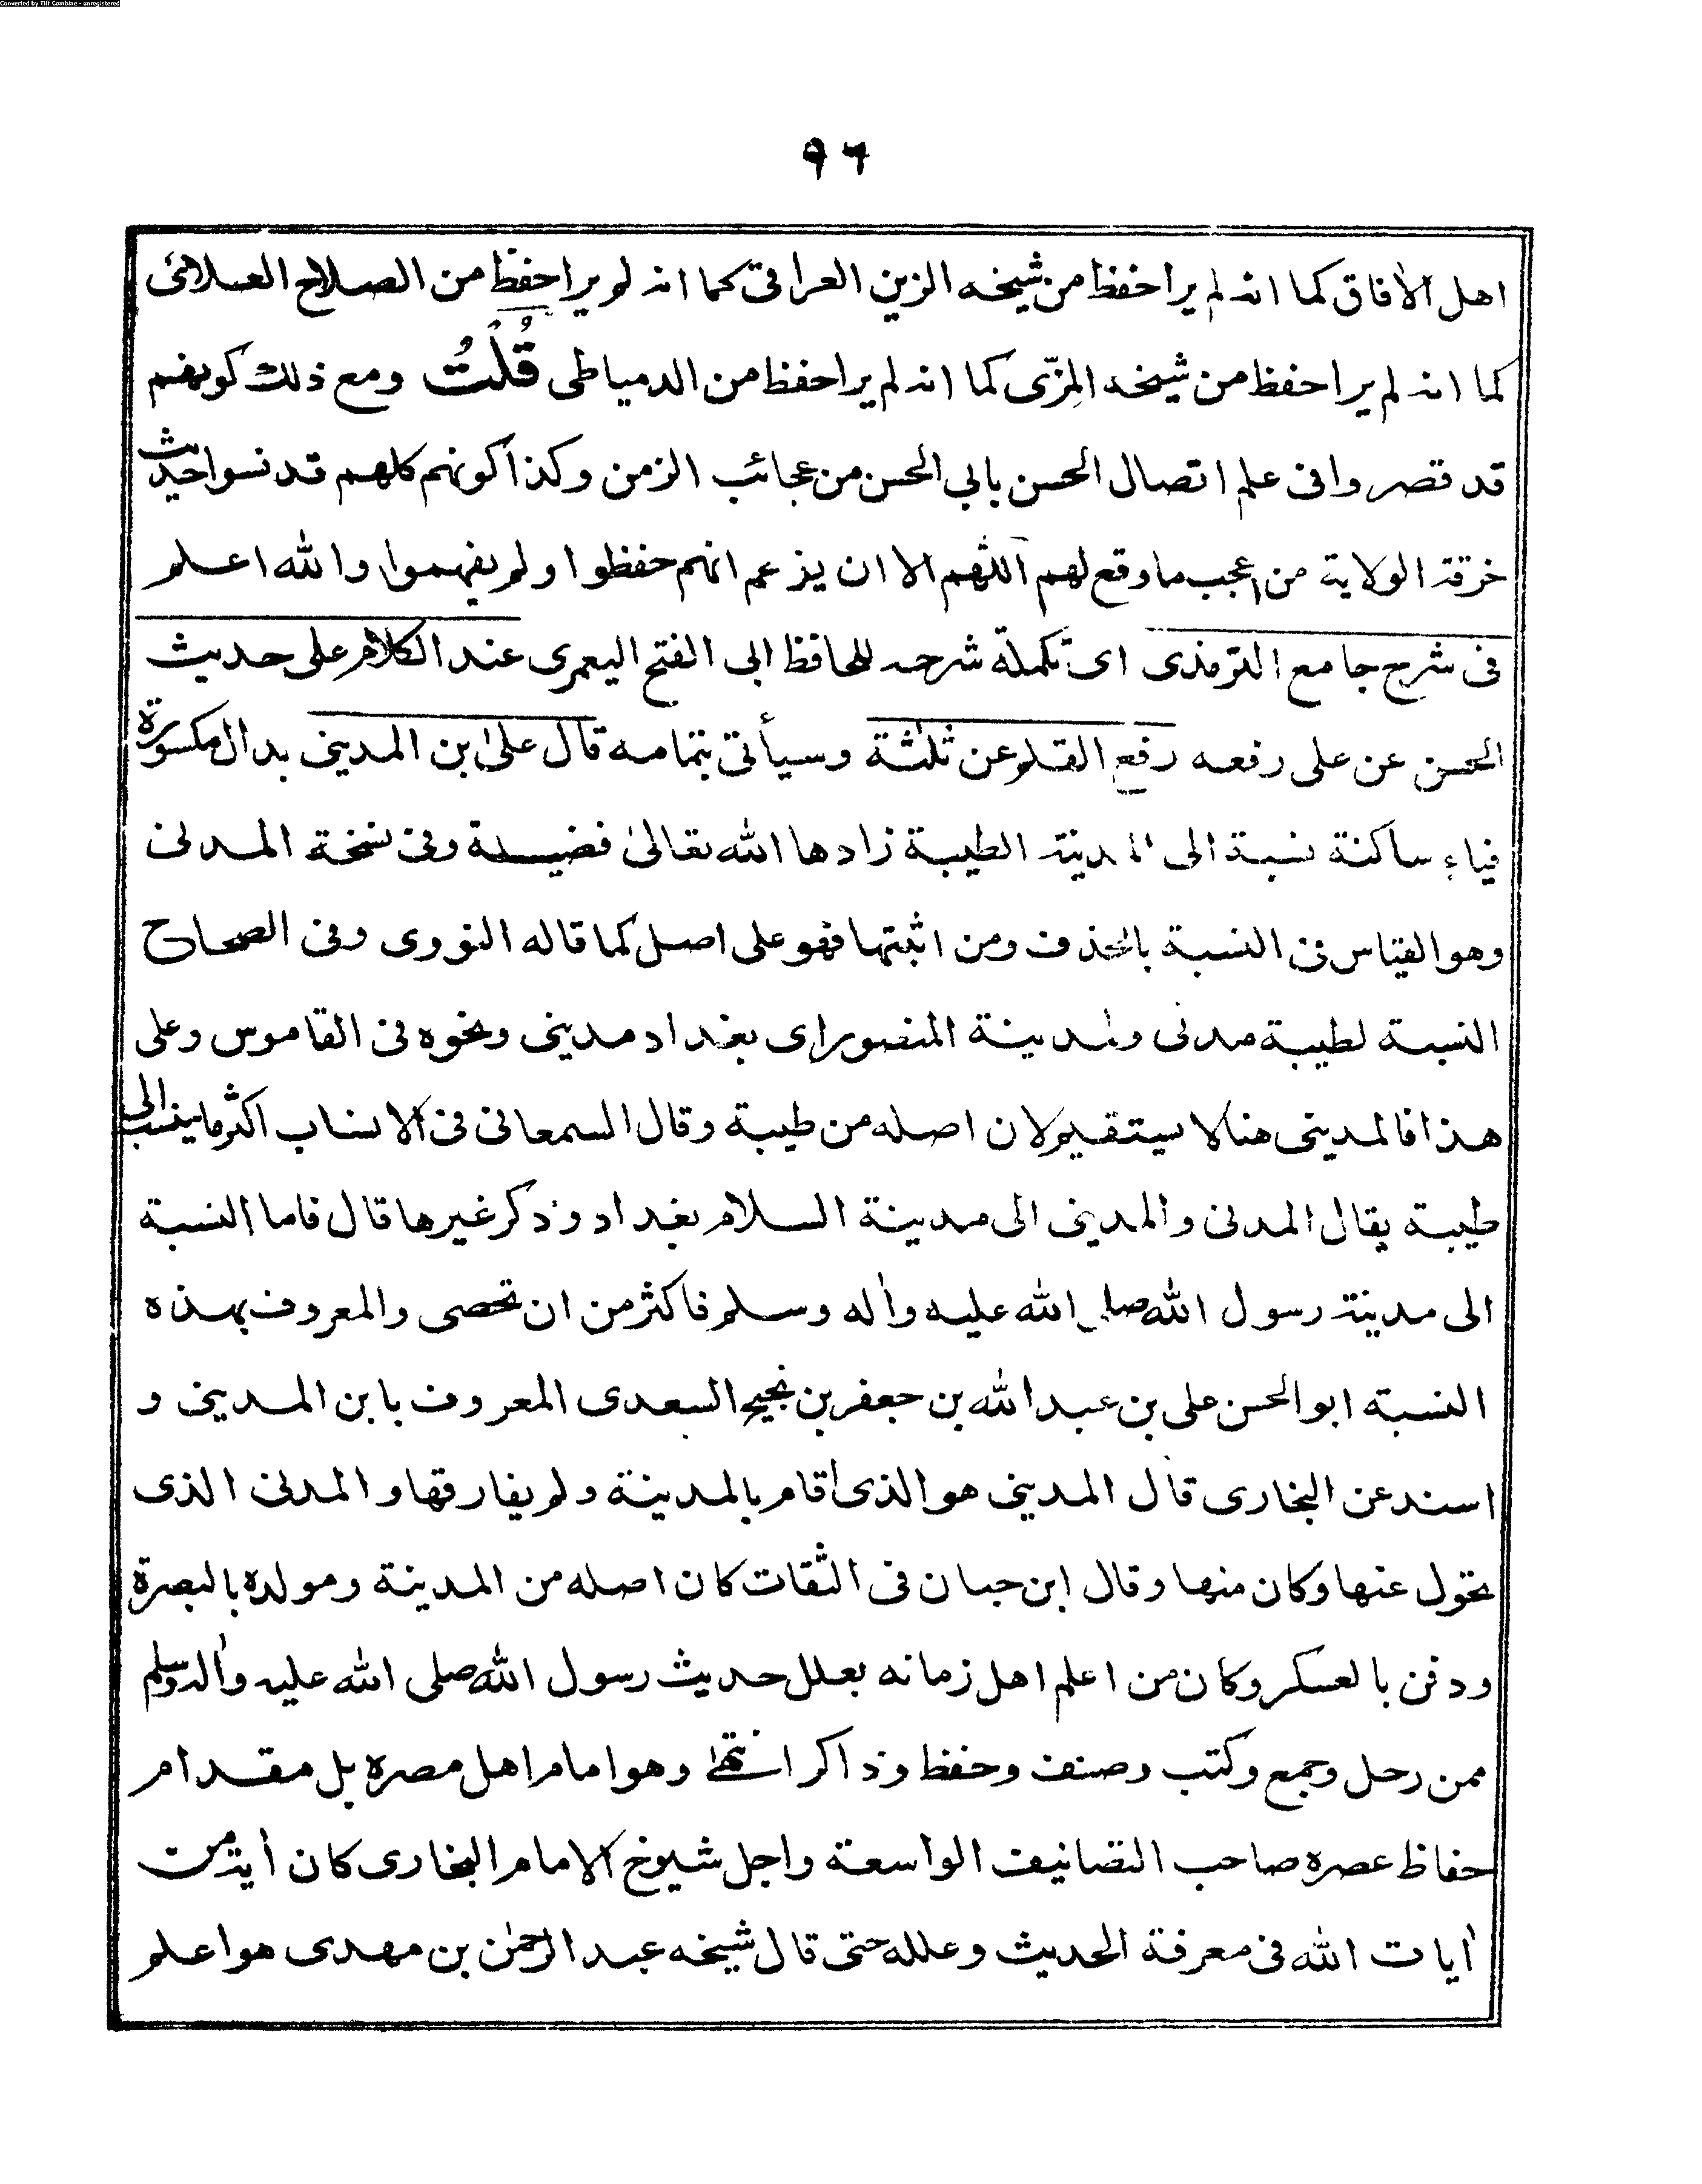 Converted by Tiff Combine - unregistered
٩٦
اهل الأفاق كما انه لم ير احفظ من شيخه الزين العراقى كما انه لم ير احفظ من الصلاح العلائى
كما انه لم ير احفظ من شيخه المِزّى كما انه لم ير احفظ من الدمياطى قُلْتُ ومع ذلك كونهم
قد قصروا فى علم اتصال الحسن بابي الحسن من عجائب الزمن وكذا كونهم كلهم قد نسوا حديث
خرقة الولاية من اعجب ما وقع لهم اللّٰهم الا ان يزعم انهم حفظوا ولم يفهموا والله اعلم
فى شرح جامع الترمذى اى تكملة شرحه للحافظ ابى الفتح اليعمرى عند الكلام على حديث
الحسن عن على رفعه رفع القلم عن ثلٰثة وسيأتى بتمامه قال علىٰ بن المدينى بدال مكسورة
فياء ساكنة نسبة الى المدينة الطيبة زادها الله تعالىٰ فضيلة وفى نسخة المدنى
وهو القياس فى النسبة بالحذف ومن اثبتها فهو على اصل كما قاله النووى وفى الصحاح
النسبة لطيبة مدنى ولمدينة المنصور اى بغداد مدينى ونحوه فى القاموس وعلى
هذا فالمدينى هنا لا يستقيم لان اصله من طيبة وقال السمعانى فى الانساب اكثر ما ينسب الى
طيبة يقال المدنى والمدينى الى مدينة السلام بغداد وذكر غيرها قال فاما النسبة
الى مدينة رسول الله صلى الله عليه واٰله وسلم فاكثر من ان تحصى والمعروف بهذه
النسبة ابو الحسن على بن عبد الله بن جعفر بن نجيح السعدى المعروف بابن المدينى و
اسند عن البخارى قال المدينى هو الذى أقام بالمدينة ولم يفارقها والمدنى الذى
تحول عنها وكان منها وقال ابن حبان فى الثقات كان اصله من المدينة ومولده بالبصرة
ودفن بالعسكر وكان من اعلم اهل زمانه بعلل حديث رسول الله صلى الله عليه واٰله وسلم
ممن رحل وجمع وكتب وصنف وحفظ وذاكر انتهىٰ وهو امام اهل مصره بل مقدام
حفاظ عصره صاحب التصانيف الواسعة واجل شيوخ الامام البخارى كان أية من
اٰيات الله فى معرفة الحديث وعلله حتى قال شيخه عبد الرحمٰن بن مهدى هو اعلم